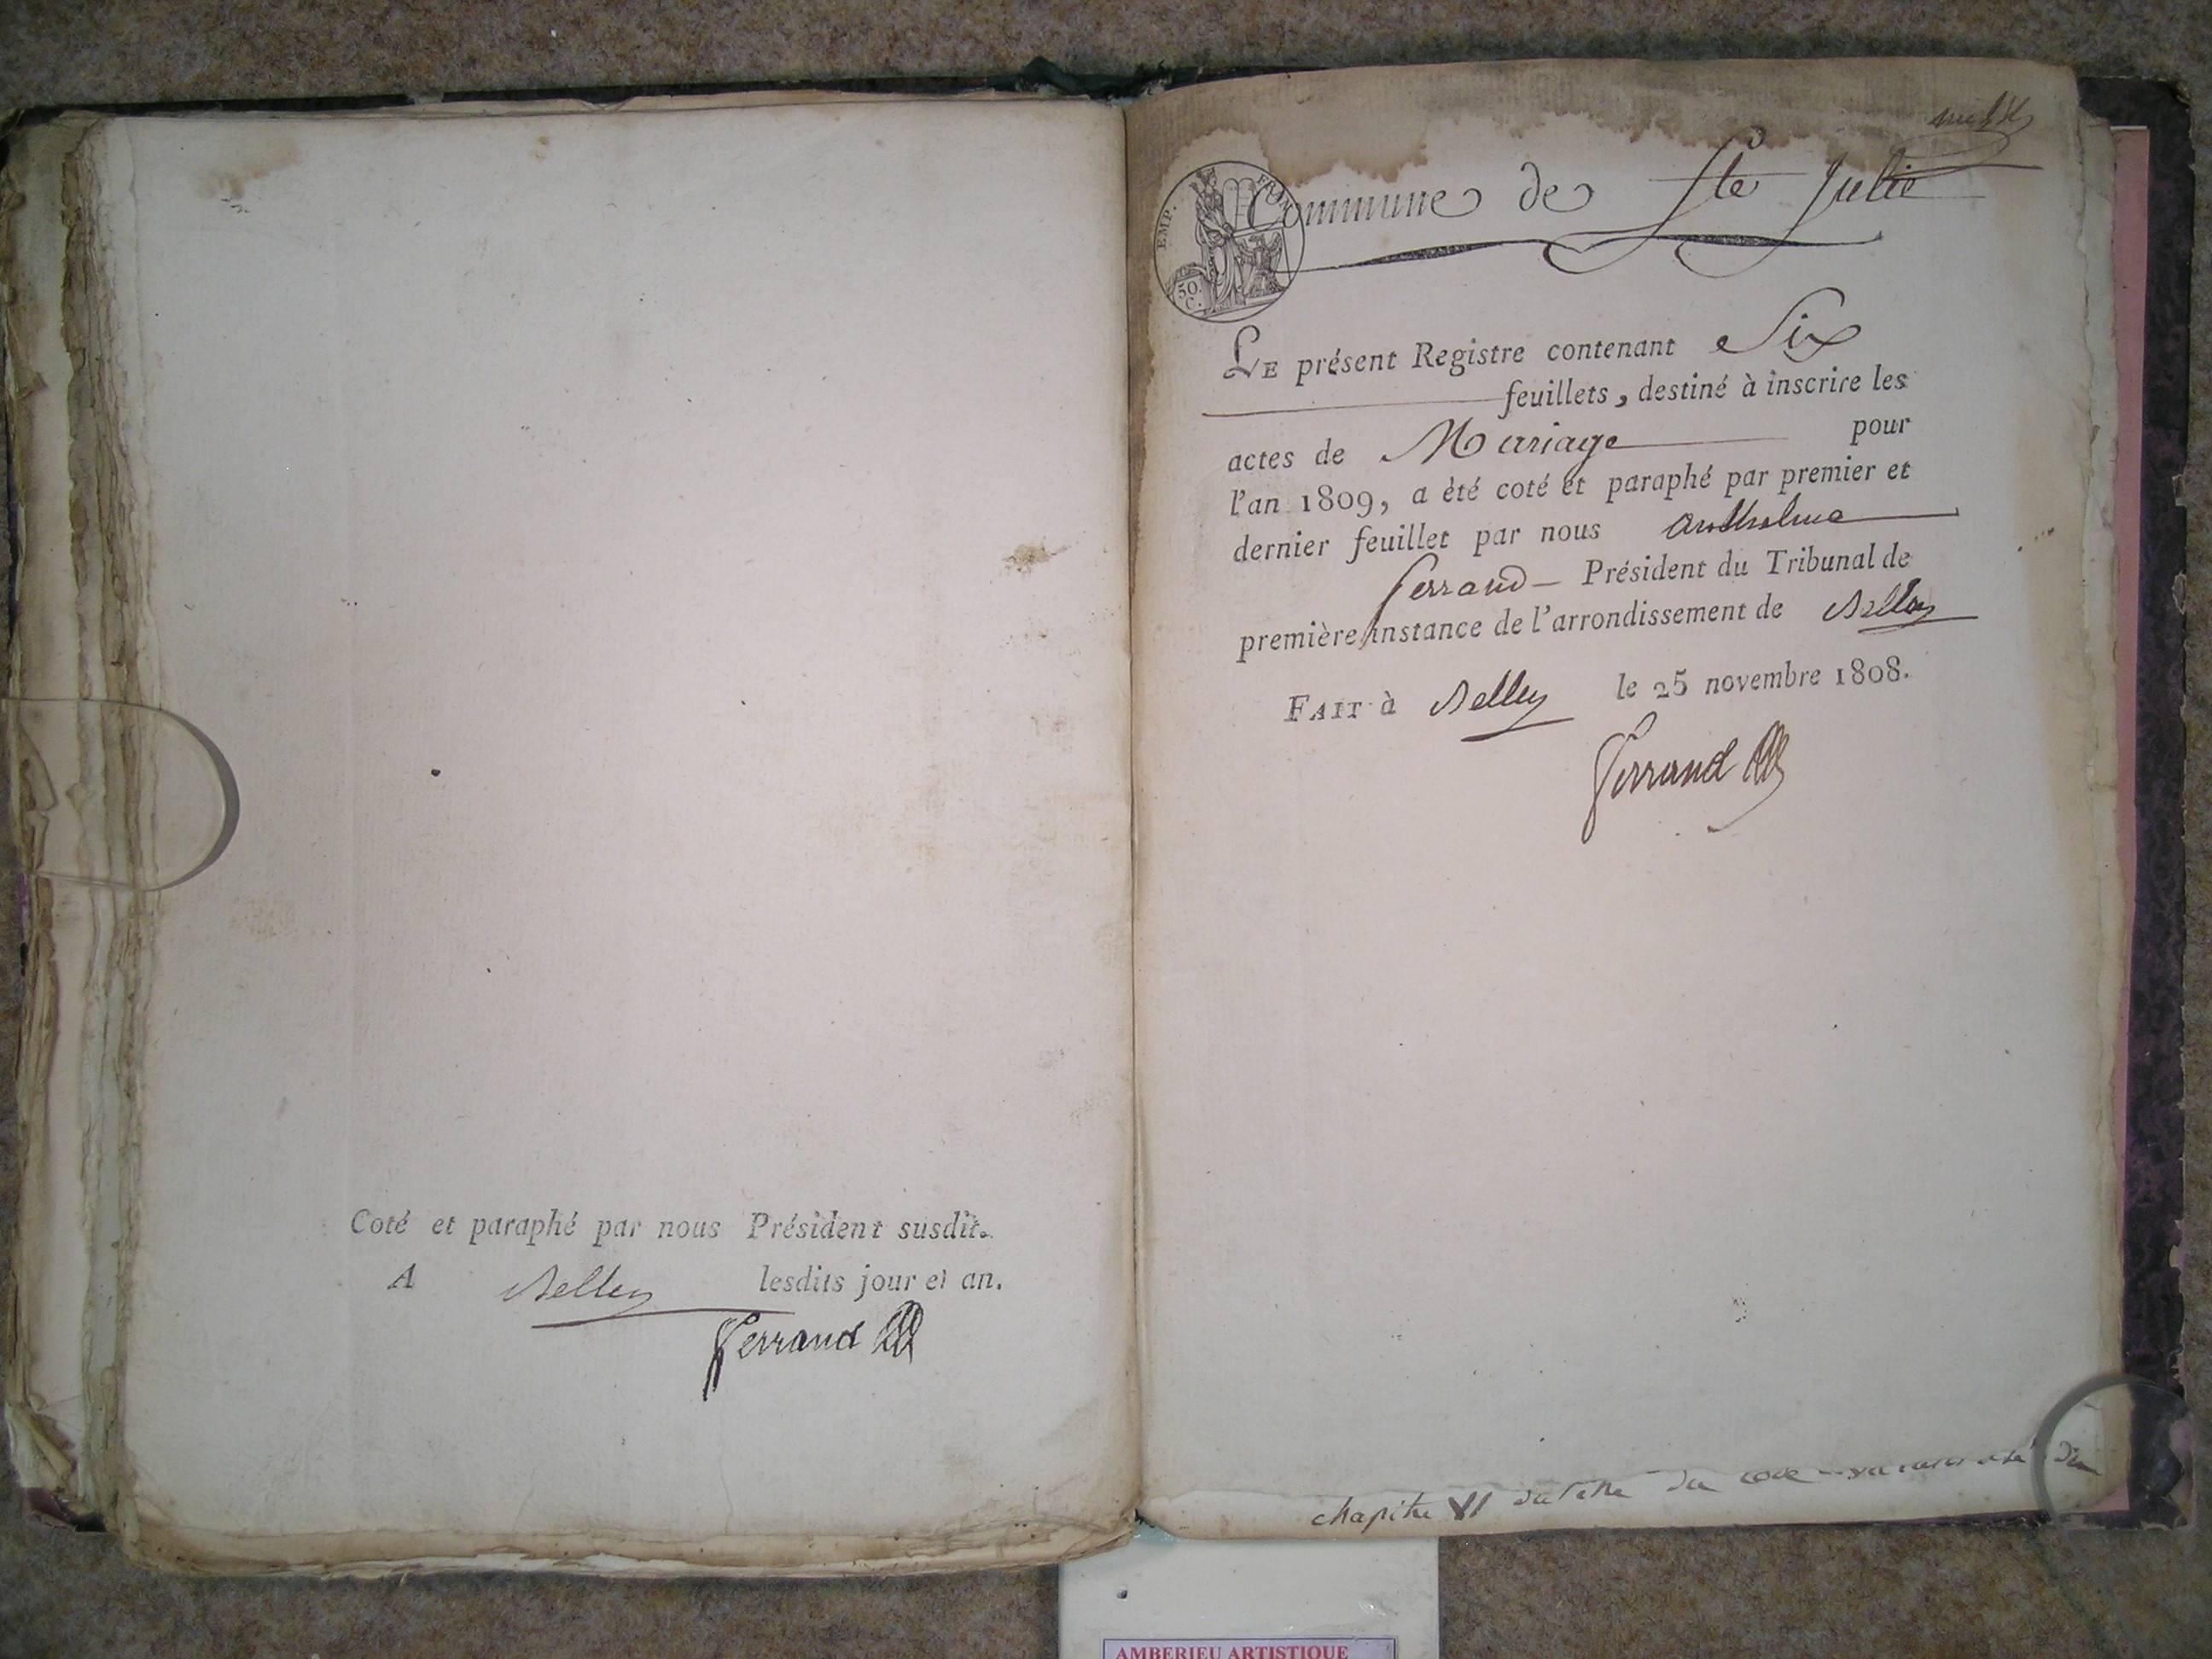 Coté et paraphé par nous Président susdit.
A Belley lesdits jour et an.
Ferrand
Commune de Ste Julie
EMP. FRAN
50. C.
LE présent Registre contenant Six
feuillets, destiné à inscrire les
actes de Mariage pour
l'an 1809, a été coté et paraphé par premier et
dernier feuillet par nous Anthelme
Ferrand — Président du Tribunal de
première instance de l'arrondissement de Belley
FAIT à Belley le 25 novembre 1808.
Ferrand
chapitre VI du du code du
AMBERIEU ARTISTIQUE